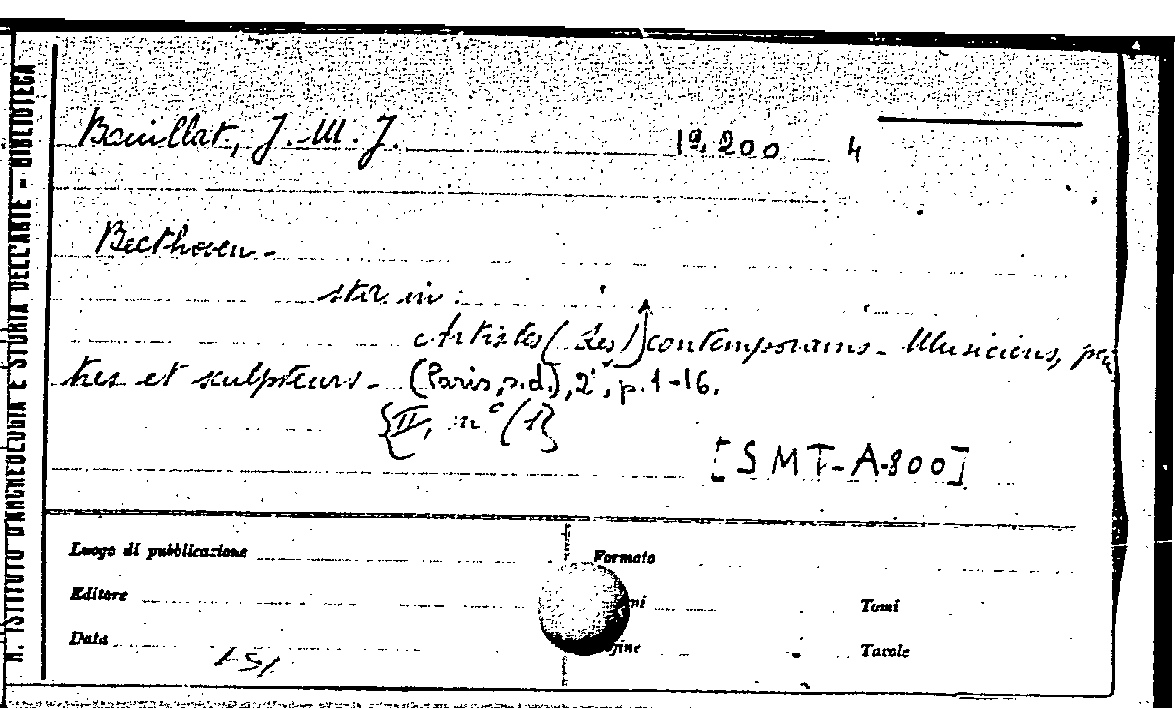 R. ISTITUTO D'ARCHEOLOGIA E STORIA DELL'ARTE - BIBLIOTECA
Bouillat, J. M. J. 19.200 4
Beethoven -
sta in:
Artistes (Les) contemporains - Musiciens, pein
tres et sculpteurs - (Paris, s.d.), 2°, p. 1-16.
{II, n° (1}
[SMT-A-800]
Luogo di pubblicazione Formato
Editore Tomi
Data Tavole